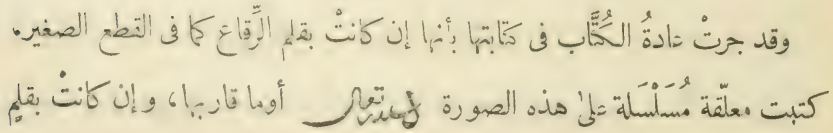 وقد جرتْ عادةُ الكُتَّاب فى كتابتها بأنها إن كانتْ بقلم الرِّقاع كما فى القطع الصغير.
كتبت معلّقة مُسَلْسَلة علىٰ هذه الصورة أوما قاربها، وإن كانتْ بقلمٍ